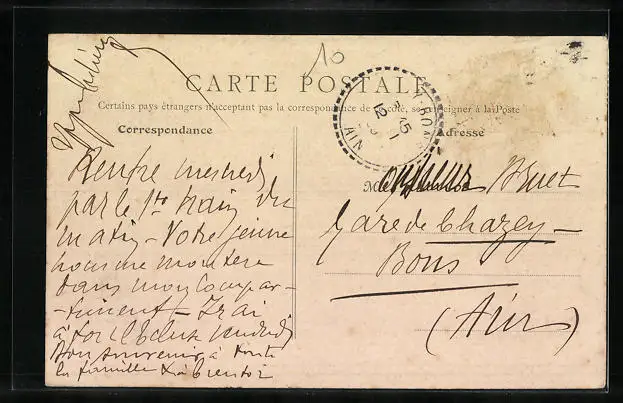 10
CARTE POSTALE
Certains pays étrangers n'acceptant pas la correspondance de ce côté, se renseigner à la Poste
Correspondance
Adresse
Rentre mercredi
par le 1er train du
matin - Votre jeune
homme montera
dans mon compar-
-timent - Irai
vendredi
Bon souvenir à toute
la famille & à bientôt
M Druet
Gare de Chazey-
Bons
(Ain)
AIN